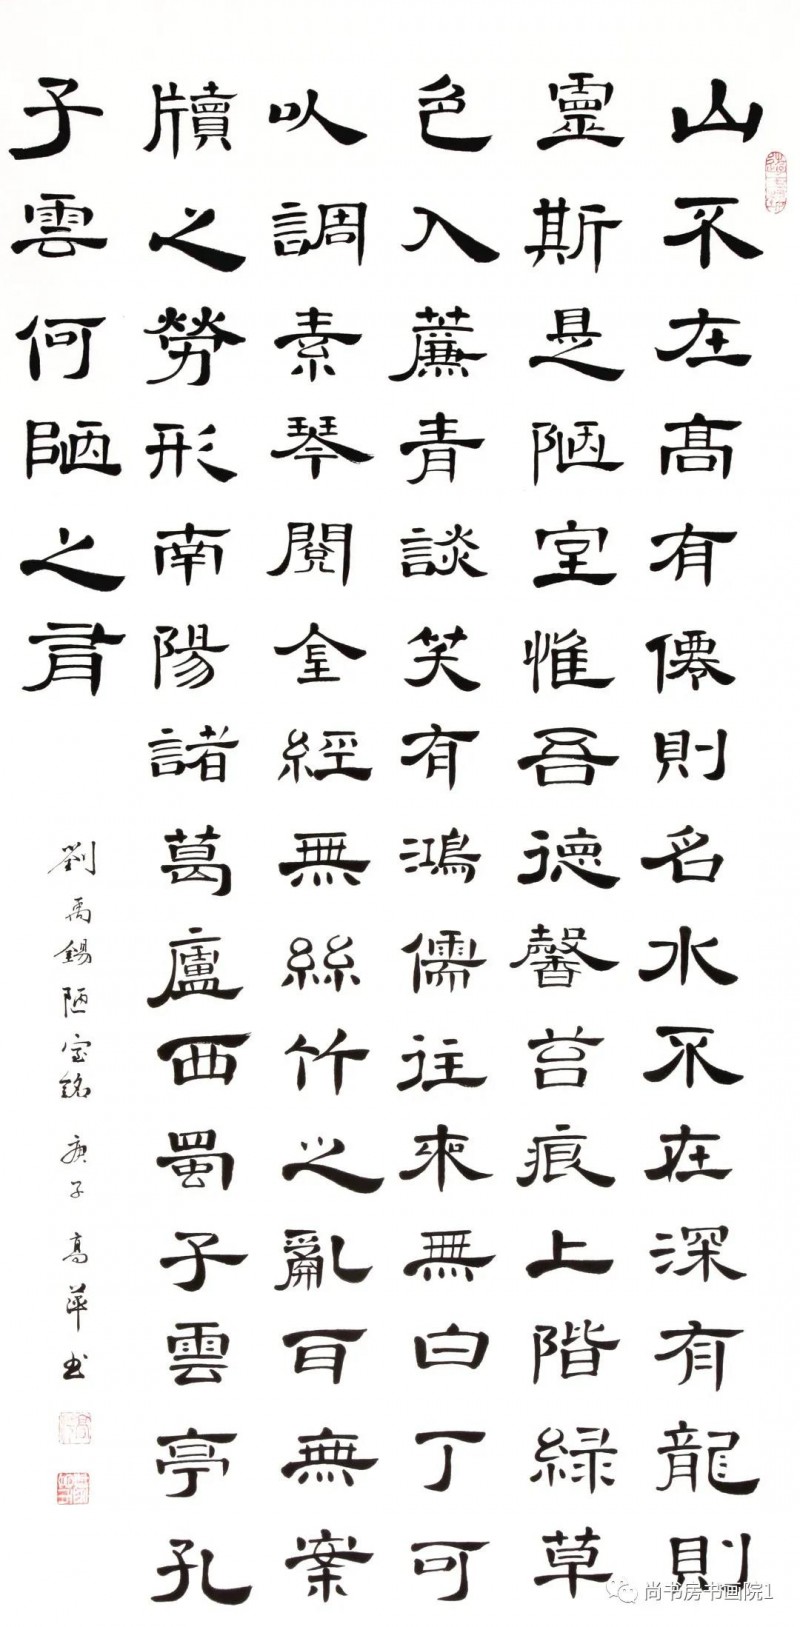 山不在髙有僊則名水不在深有龍則
靈斯是陋室惟吾德馨苔痕上階緑草
色入薕青談笑有鴻儒往來無白丁可
以調素琴閱金經無絲竹之亂百無案
牘之勞形南陽諸葛廬西蜀子雲亭孔
子雲何陋之有
劉禹錫陋室銘 庚子 高萍书
尚书房书画院1